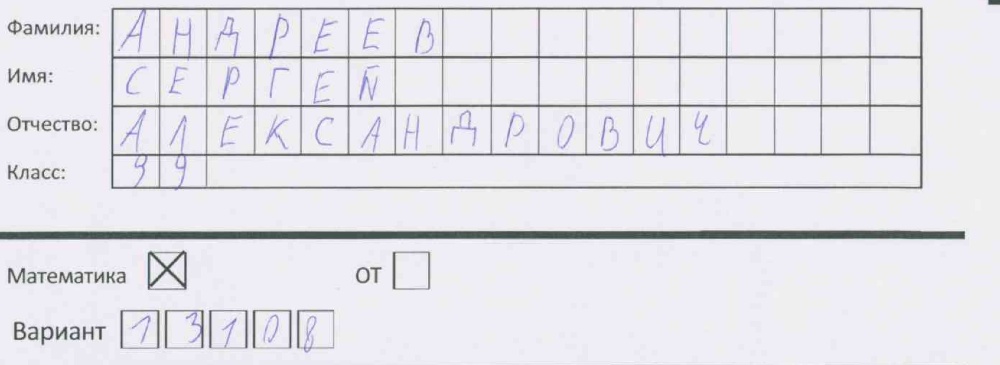 Фамилия: АНДРЕЕВ
Имя: СЕРГЕЙ
Отчество: АЛЕКСАНДРОВИЧ
Класс: 99
Математика ОТ
Вариант 13108